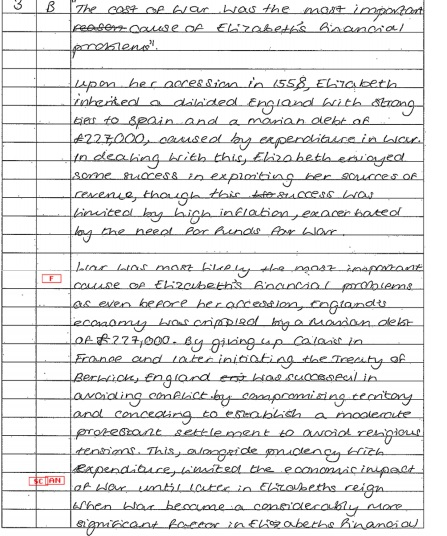 3 B "The cost of War was the most important
reason cause of Elizabeth's financial
problems".
upon her accession in 1558, Elizabeth
inherited a divided England with strong
ties to Spain and a marian debt of
£227,000, caused by expenditure in War.
In dealing with this, Elizabeth enjoyed
some success in exploiting her sources of
revenue, though this success was
limited by high inflation, exacerbated
by the need for funds for War.
War was most likely the most important
F cause of Elizabeth's financial problems
as even before her accession, England's
economy was crippled by a Marian debt
of £227,000. By giving up Calais in
France and later initiating the Treaty of
Berwick, England was successful in
avoiding conflict by compromising territory
and conceding to establish a moderate
protestant settlement to avoid religious
tensions. This, alongside prudency with
SC AN expenditure, limited the economic impact
of War, until later in Elizabeths reign
when War became a considerably more
significant factor in Elizabeths financial